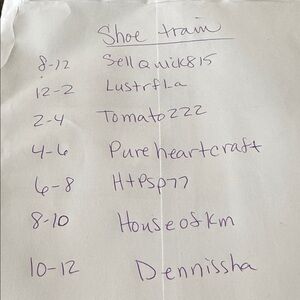 Shoe train
8-12 SellQuick815
12-2 LustrfLa
2-4 Tomato222
4-6 Pureheartcraft
6-8 HtPSp77
8-10 Houseofkm
10-12 Dennissha